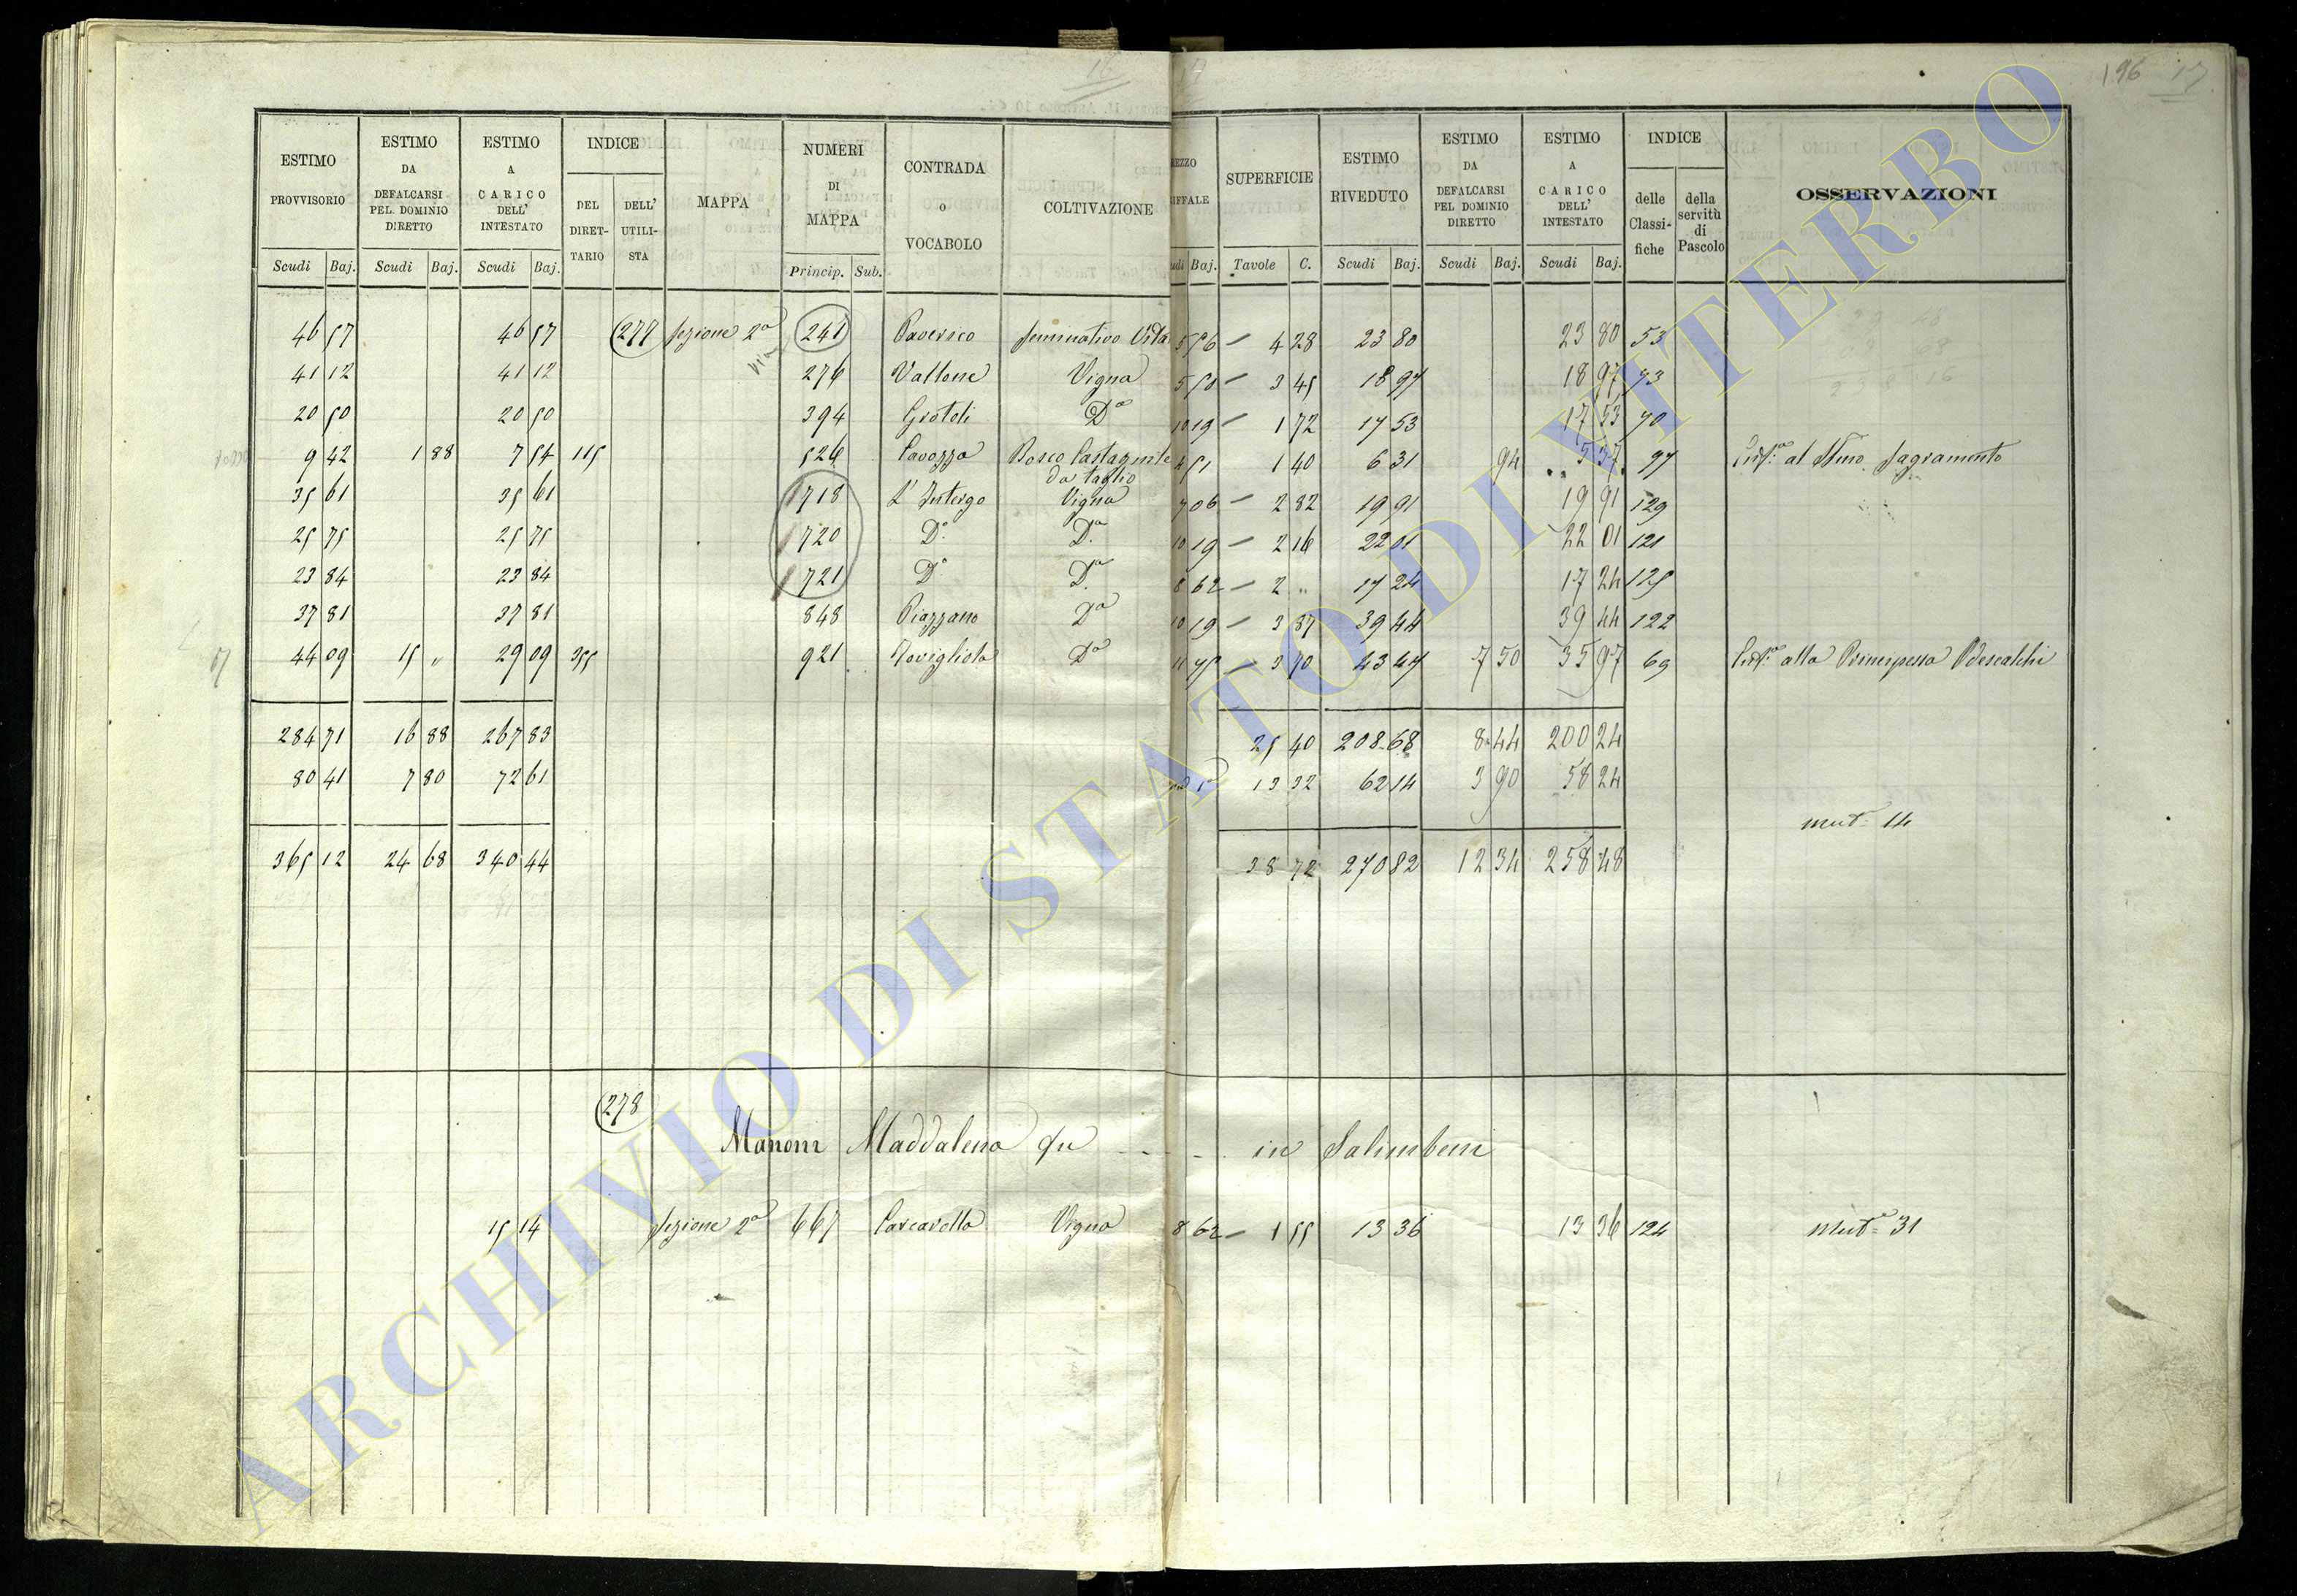 16 17 196 17
ESTIMO PROVVISORIO Scudi Baj.
ESTIMO DA DEFALCARSI PEL. DOMINIO DIRETTO Scudi Baj.
ESTIMO A CARICO DELL' INTESTATO Scudi Baj.
INDICE DEL DIRETTARIO DELL' UTILISTA
MAPPA
NUMERI DI MAPPA Princip. Sub.
CONTRADA o VOCABOLO
COLTIVAZIONE
Baj.
SUPERFICIE Tavole C.
ESTIMO RIVEDUTO Scudi Baj.
ESTIMO DA DEFALCARSI PEL DOMINIO DIRETTO Scudi Baj.
ESTIMO A CARICO DELL' INTESTATO Scudi Baj.
INDICE delle Classifiche della servitù di Pascolo
OSSERVAZIONI
46 57 46 57 277 sezione 2a 241 seminativo Vita 5 56 — 4 28 23 80 23 80 53
41 12 41 12 276 Vallone Vigna 5 50 — 3 45 18 97 18 97 73
20 50 20 50 394 Grotoli Da 10 19 — 1 72 17 53 17 53 70
9 42 1 88 7 54 115 526 Cavozza Bosco Castagnile da taglio 4 51 1 40 6 31 94 5 37 97 al SSmo Sagramento
35 61 35 61 718 L'Intergo Vigna 7 06 — 2 82 19 91 19 91 129
25 75 25 75 720 Do Da 10 19 — 2 16 22 01 22 01 121
23 84 23 84 721 Do Da 8 62 — 2 " 17 24 17 24 125
37 81 37 81 848 Piazzano Da 10 19 — 3 87 39 44 39 44 122
44 09 15 " 29 09 355 921 Da — 3 70 43 47 7 50 35 97 69 alla Principessa Odescalchi
284 71 16 88 267 83 25 40 208 68 8 44 200 24
80 41 7 80 72 61 13 32 62 14 3 90 58 24
mut. 14
365 12 24 68 340 44 38 72 270 82 12 34 258 48
278
Manoni Maddalena qu - - - - in Salimbeni
15 14 sezione 2a 667 Carcarella Vigna 8 62 — 1 55 13 36 13 36 124 muta 31
ARCHIVIO DI STATO DI VITERBO